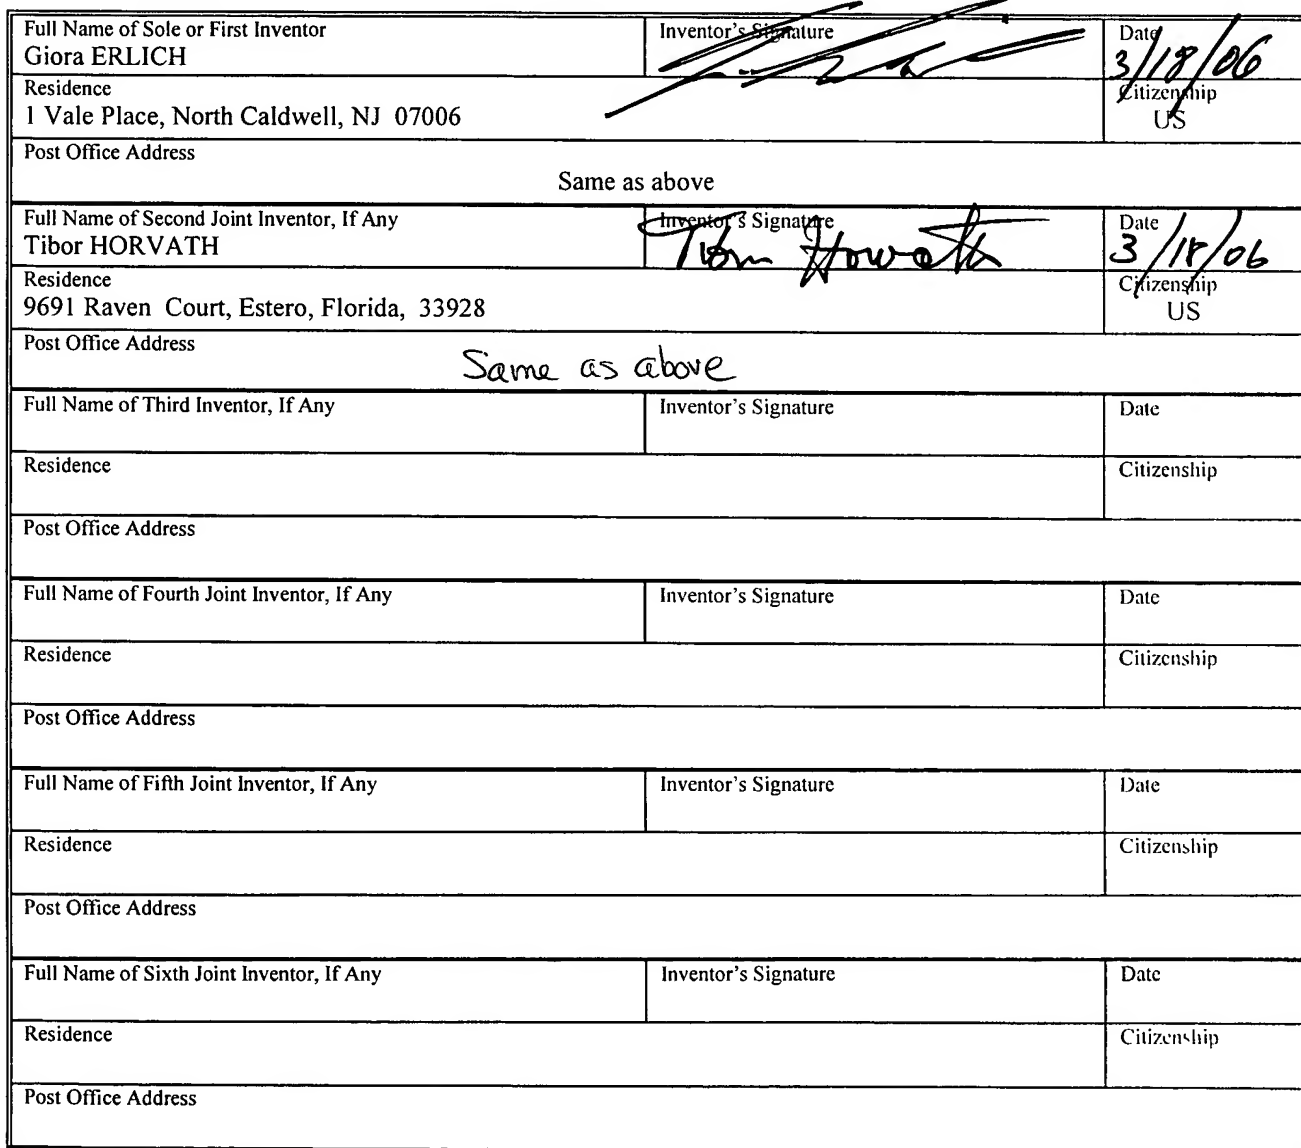 Full Name of Sole or First Inventor Inventor's Signature Date
Giora ERLICH 3/18/06
Residence Citizenship
1 Vale Place, North Caldwell, NJ 07006 US
Post Office Address
Same as above
Full Name of Second Joint Inventor, If Any Inventor's Signature Date
Tibor HORVATH Tibor Horvath 3/18/06
Residence Citizenship
9691 Raven Court, Estero, Florida, 33928 US
Post Office Address
Same as above
Full Name of Third Inventor, If Any Inventor's Signature Date
Residence Citizenship
Post Office Address
Full Name of Fourth Joint Inventor, If Any Inventor's Signature Date
Residence Citizenship
Post Office Address
Full Name of Fifth Joint Inventor, If Any Inventor's Signature Date
Residence Citizenship
Post Office Address
Full Name of Sixth Joint Inventor, If Any Inventor's Signature Date
Residence Citizenship
Post Office Address